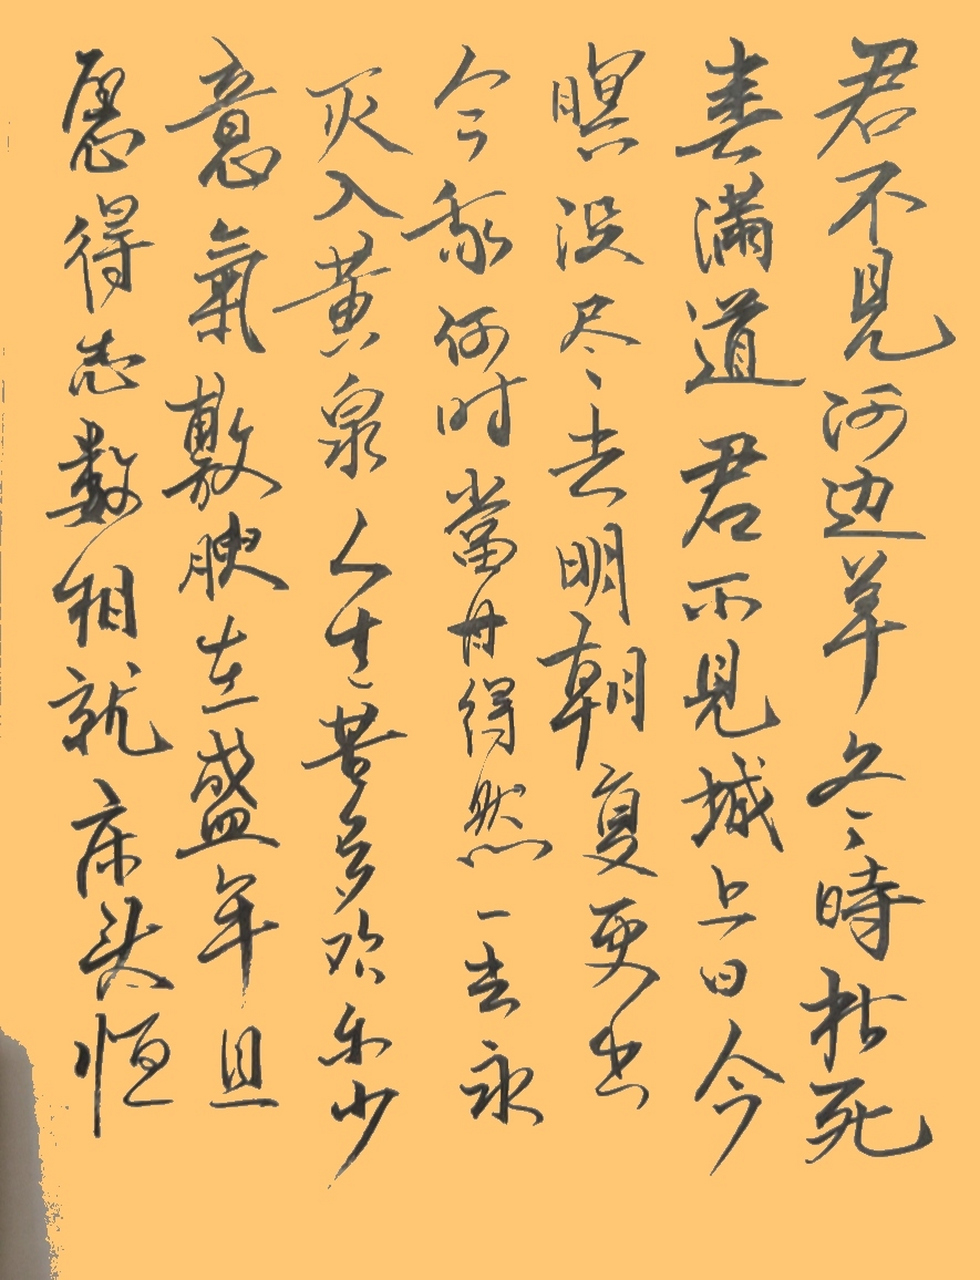 君不見河边草冬時枯死
春滿道君不見城上日今
暝没尽去明朝夏更出
今我何时當丹得然一去永
灭入黄泉人生苦多欢乐少
意氣敷腴在盛年且
愿得志数相就床头恒